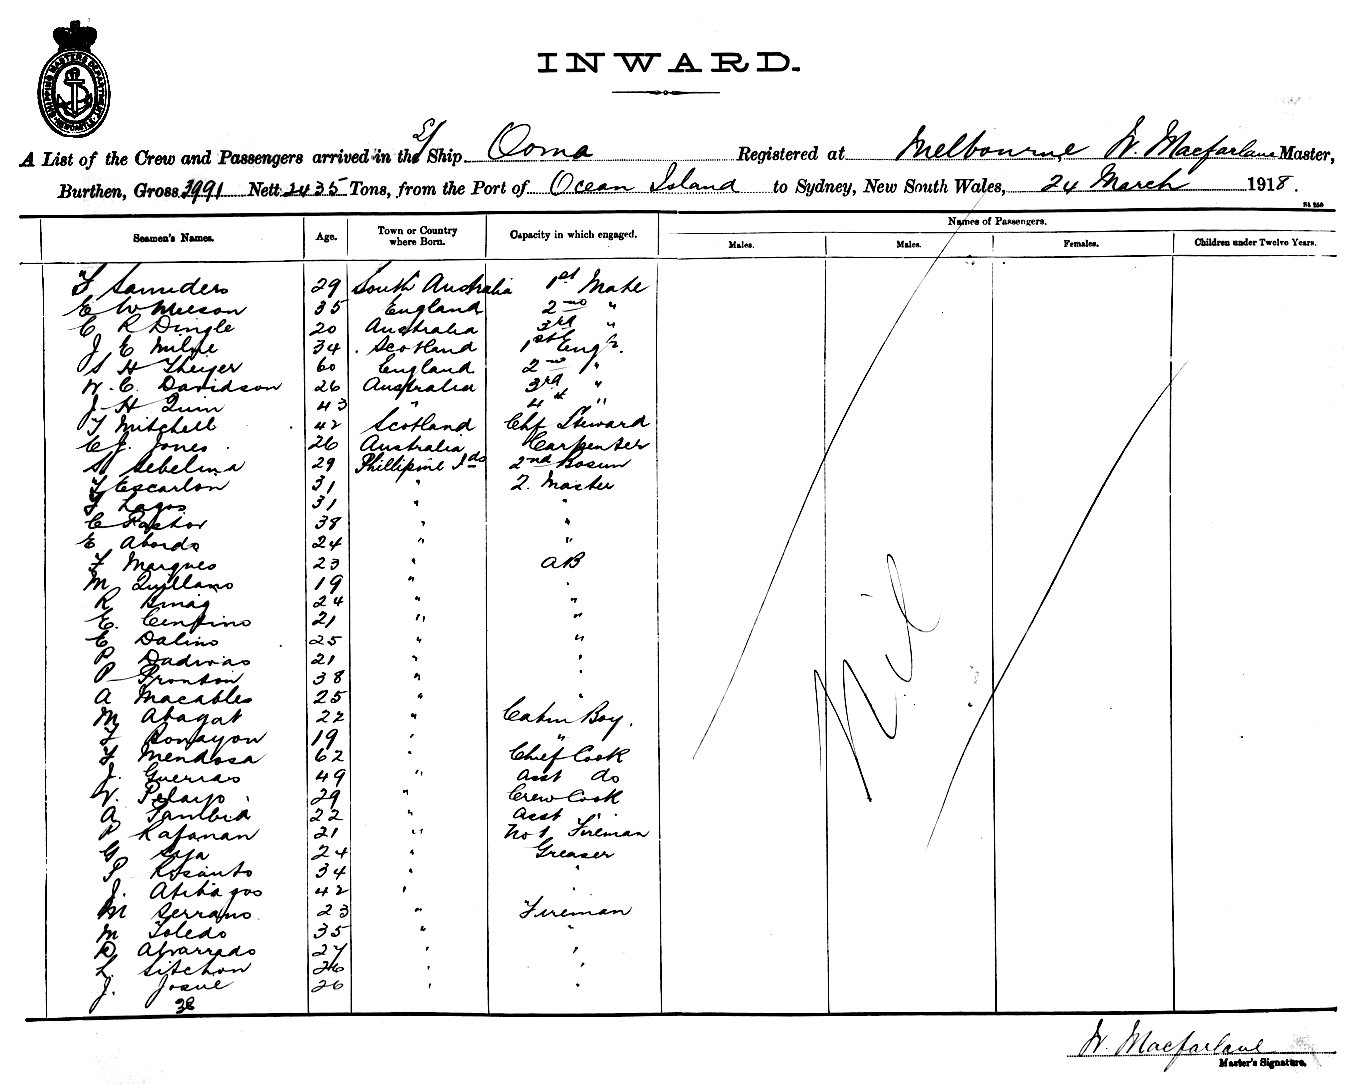 SHIPPING MASTERS DEPARTMENT NEWCASTLE
INWARD.
A List of the Crew and Passengers arrived in the S/ Ship Ooma Registered at Melbourne W. Macfarlane Master,
Burthen, Gross 3991 Nett 2435 Tons, from the Port of Ocean Island to Sydney, New South Wales, 24 March 1918.
Names of Passengers.
Seamen's Names. Age. Town or Country where Born. Capacity in which engaged. Males. Males. Females. Children under Twelve Years.
F Saunders 29 South Australia 1st Mate
E W 35 England 2nd "
C R Dingle 20 Australia 3rd "
J E Milne 34 Scotland 1st Engr.
S H Theyer 60 England 2nd "
W. C. Davidson 26 Australia 3rd "
J H Quin 43 " 4th "
T Mitchell 42 Scotland Chf Steward
C J. Jones 26 Australia Carpenter
S Sebelina 29 Phillipine Ids 2nd Bosun
F Escarlon 31 " 2. Master
Lagos 31 " "
C Pastor 38 " "
E Abordo 24 " "
F Marques 23 " AB
M Quillano 19 " "
R 24 " "
E. Cenfino 21 " "
C Dalino 25 " "
P Dadivas 21 " "
P Fronton 38 " "
A Macables 25 " "
M Abagat 22 " Cabin Boy.
F Ronayon 19 " "
F Mendosa 62 " Chief Cook
J. Guerrao 49 " Asst do
V. Pelayo 29 " Crew Cook
A Tambia 22 " Asst "
P Rafanan 21 " No 1 Fireman
G 24 " Greaser
P Rosanto 34 " "
J. Atibagos 42 " "
M Serrano 23 " Fireman
M Toledo 35 " "
D Alvarrado 27 " "
L. Sitchon 26 " "
J. Josue 26 " "
38
Nil
W. Macfarlane
Master's Signature.